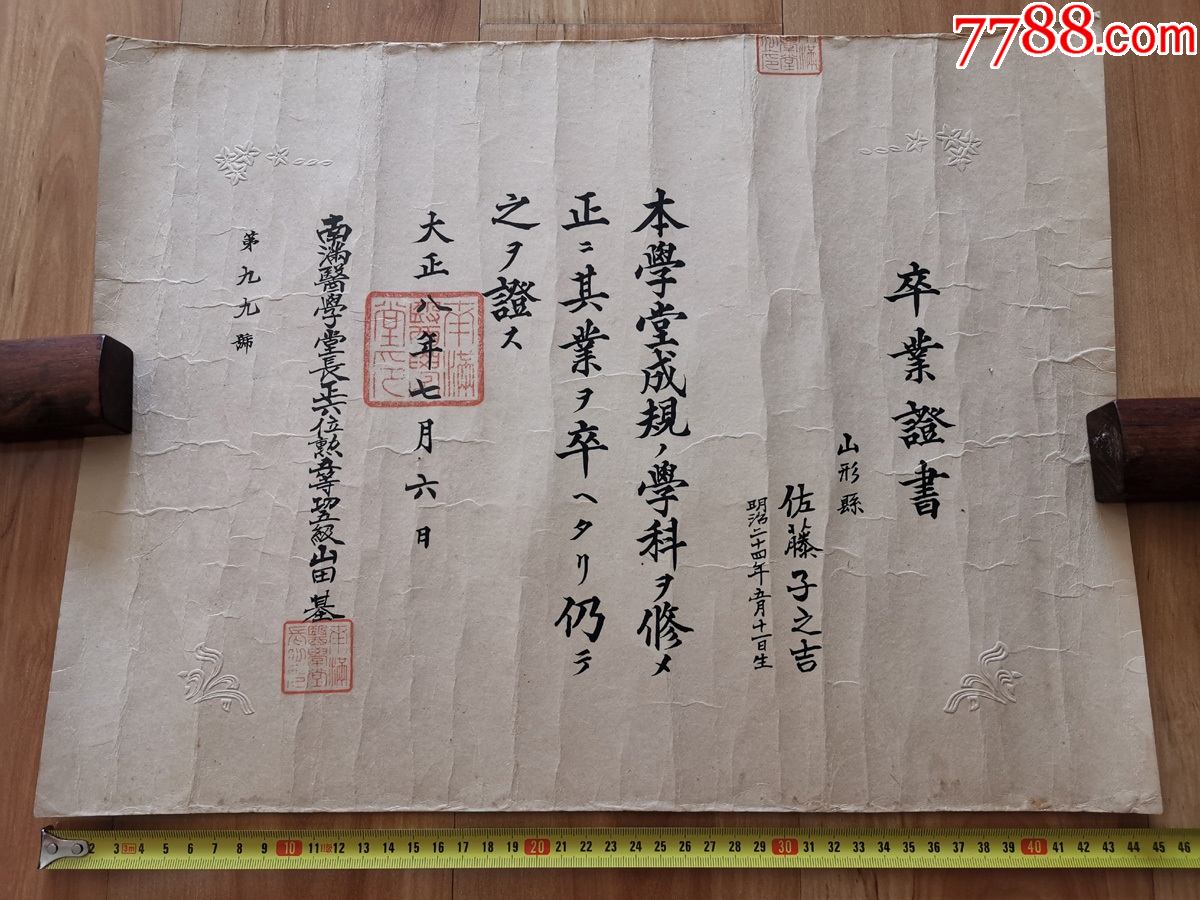 7788.com
卒業證書
山形縣
佐藤子之吉
明治二十四年五月十一日生
本學堂成規ノ學科ヲ修メ
正ニ其業ヲ卒ヘタリ仍テ
之ヲ證ス
大正八年七月六日
南滿醫學堂印
南滿醫學堂長正六位勲五等功五級山田基
第九九號
2 3 3m 4 5 6 7 8 9 10 11 12 13 14 15 16 17 18 19 20 21 22 23 24 25 26 27 28 29 30 31 32 33 34 35 36 37 38 39 40 41 42 43 44 45 46